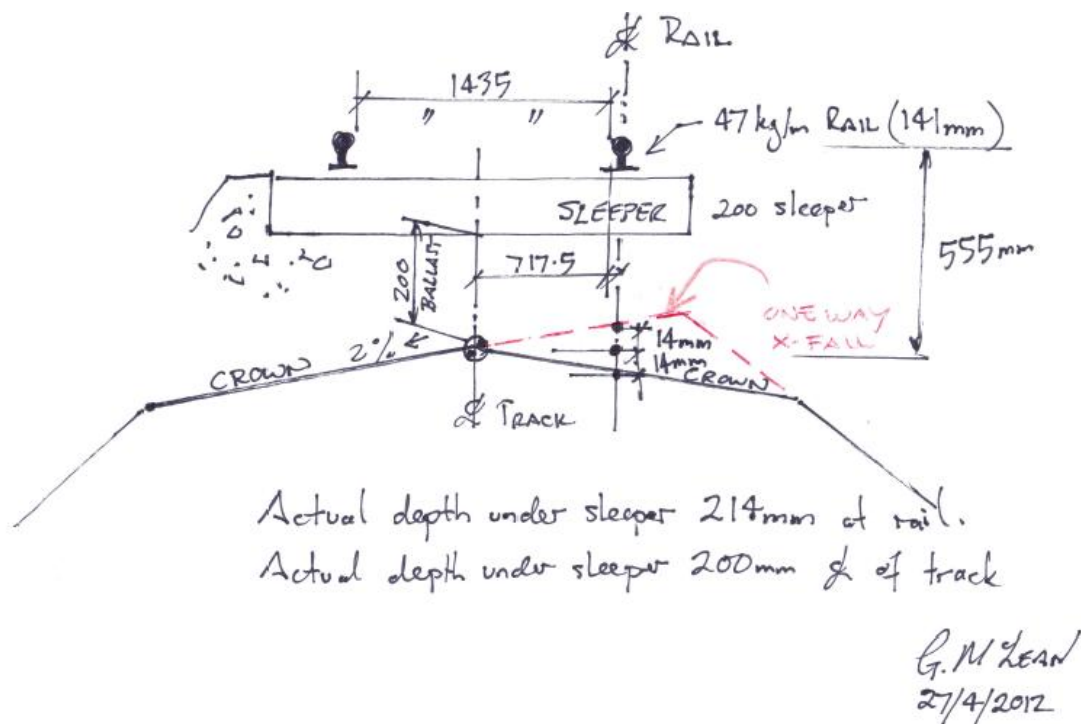 ℄ RAIL
1435
" "
47kg/m RAIL (141mm)
SLEEPER
200 sleeper
555mm
717.5
200
BALLAST
ONE WAY
X-FALL
14mm
14mm
2%
CROWN
CROWN
℄ TRACK
Actual depth under sleeper 214mm at rail.
Actual depth under sleeper 200mm ℄ of track
G. McLEAN
27/4/2012